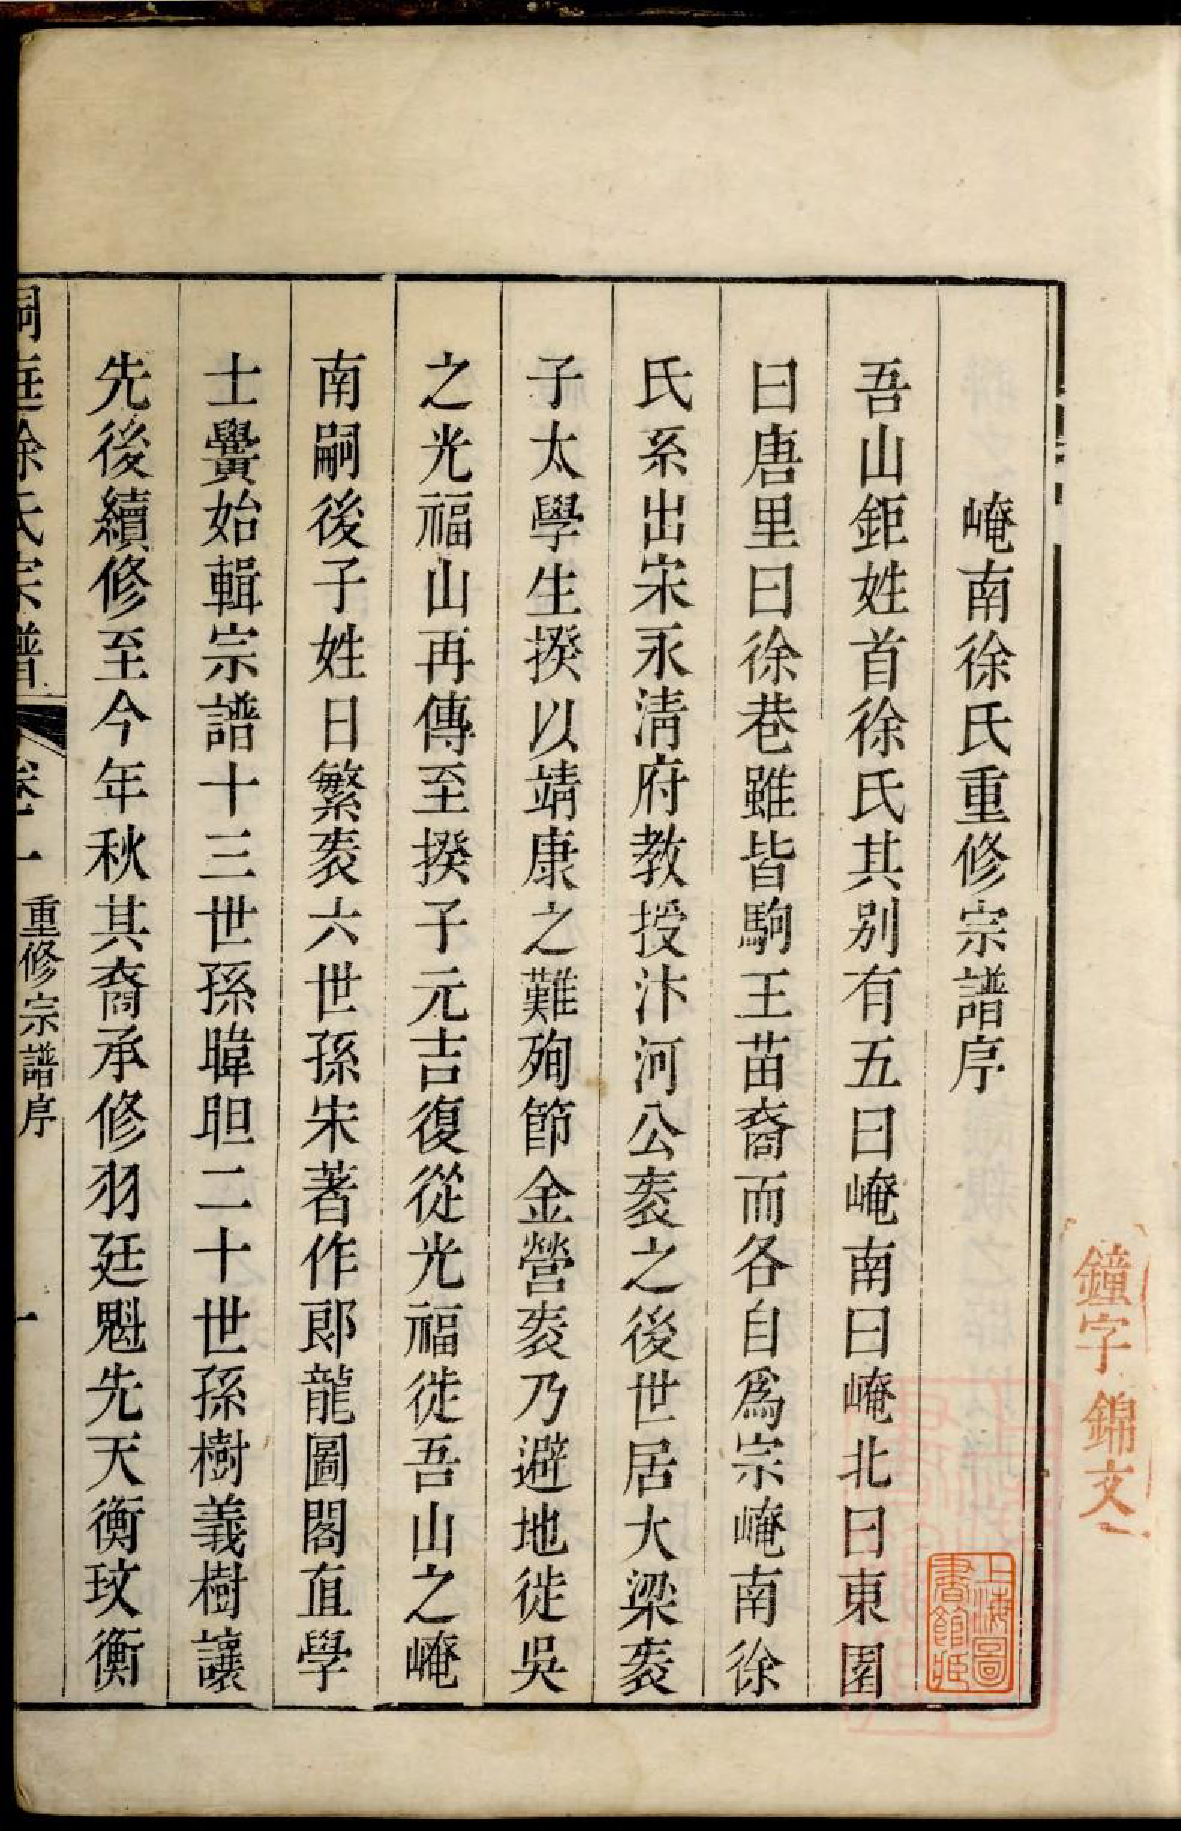 崦南徐氏重修宗譜序
吾山鉅姓首徐氏其別有五曰崦南曰崦北曰東園
曰唐里曰徐巷雖皆駒王苗裔而各自爲宗崦南徐
氏系出宋永清府教授汴河公袠之後世居大梁袠
子太學生揆以靖康之難殉節金營袠乃避地徙吳
之光福山再傳至揆子元吉復從光福徙吾山之崦
南嗣後子姓日繁袠六世孫朱著作郎龍圖閣直學
士黌始輯宗譜十三世孫暐䏙二十世孫樹義樹讓
先後續修至今年秋其裔承修羽廷魁先天衡玟衡
洞庭徐氏宗譜 卷一 重修宗譜序 一
鐘字 錦文
上海圖書館藏